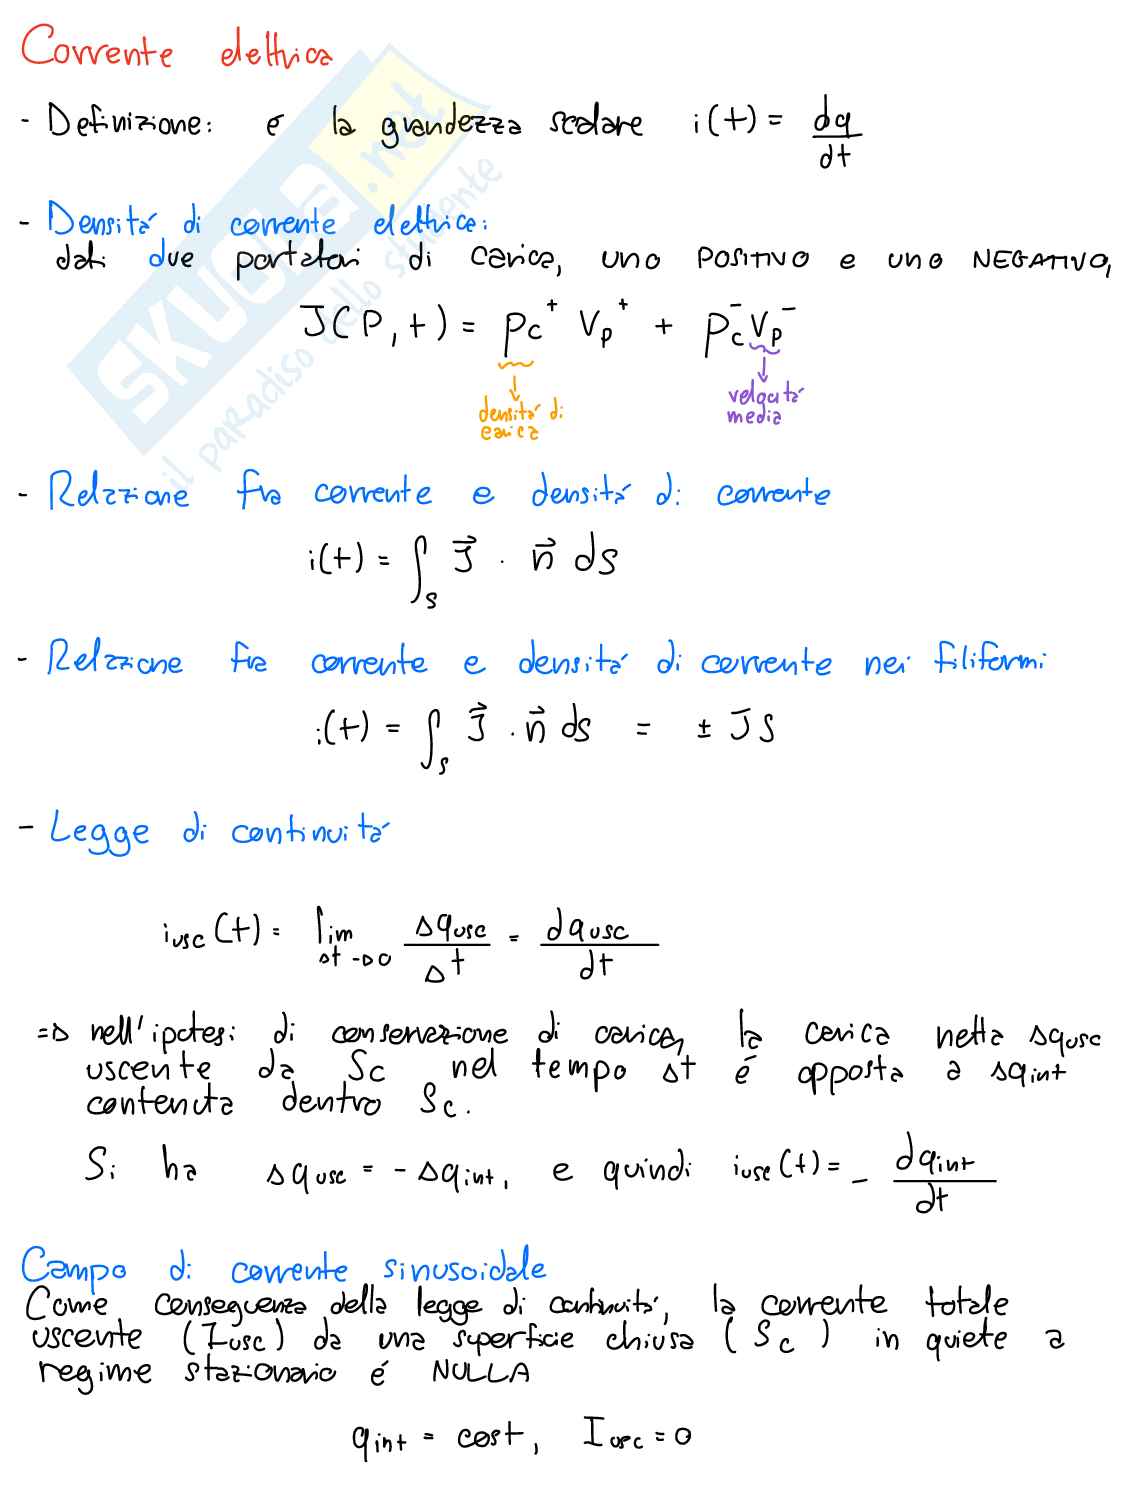 Corrente elettrica
- Definizione: é la grandezza scalare i(t) = dq/dt
- Densitá di corrente elettrica:
dati due portatori di carica, uno POSITIVO e uno NEGATIVO,
J(P, t) = ρc⁺ Vp⁺ + ρc⁻ Vp⁻
densitá di carica
velocitá media
- Relazione fra corrente e densitá di corrente
i(t) = ∫s J⃗ · n⃗ ds
- Relazione fra corrente e densitá di corrente nei filiformi
i(t) = ∫s J⃗ · n⃗ ds = ± JS
- Legge di continuitá
iusc(t) = lim Δt→0 Δqusc/Δt = dqusc/dt
=> nell'ipotesi di conservazione di carica, la carica netta Δqusc
uscente da Sc nel tempo Δt é opposta a Δqint
contenuta dentro Sc.
Si ha Δqusc = - Δqint, e quindi iusc(t) = - dqint/dt
Campo di corrente sinusoidale
Come conseguenza della legge di continuitá, la corrente totale
uscente (Iusc) da una superficie chiusa (Sc) in quiete a
regime stazionario é NULLA
qint = cost, Iusc = 0
SKUOLA.net
il paradiso dello studente